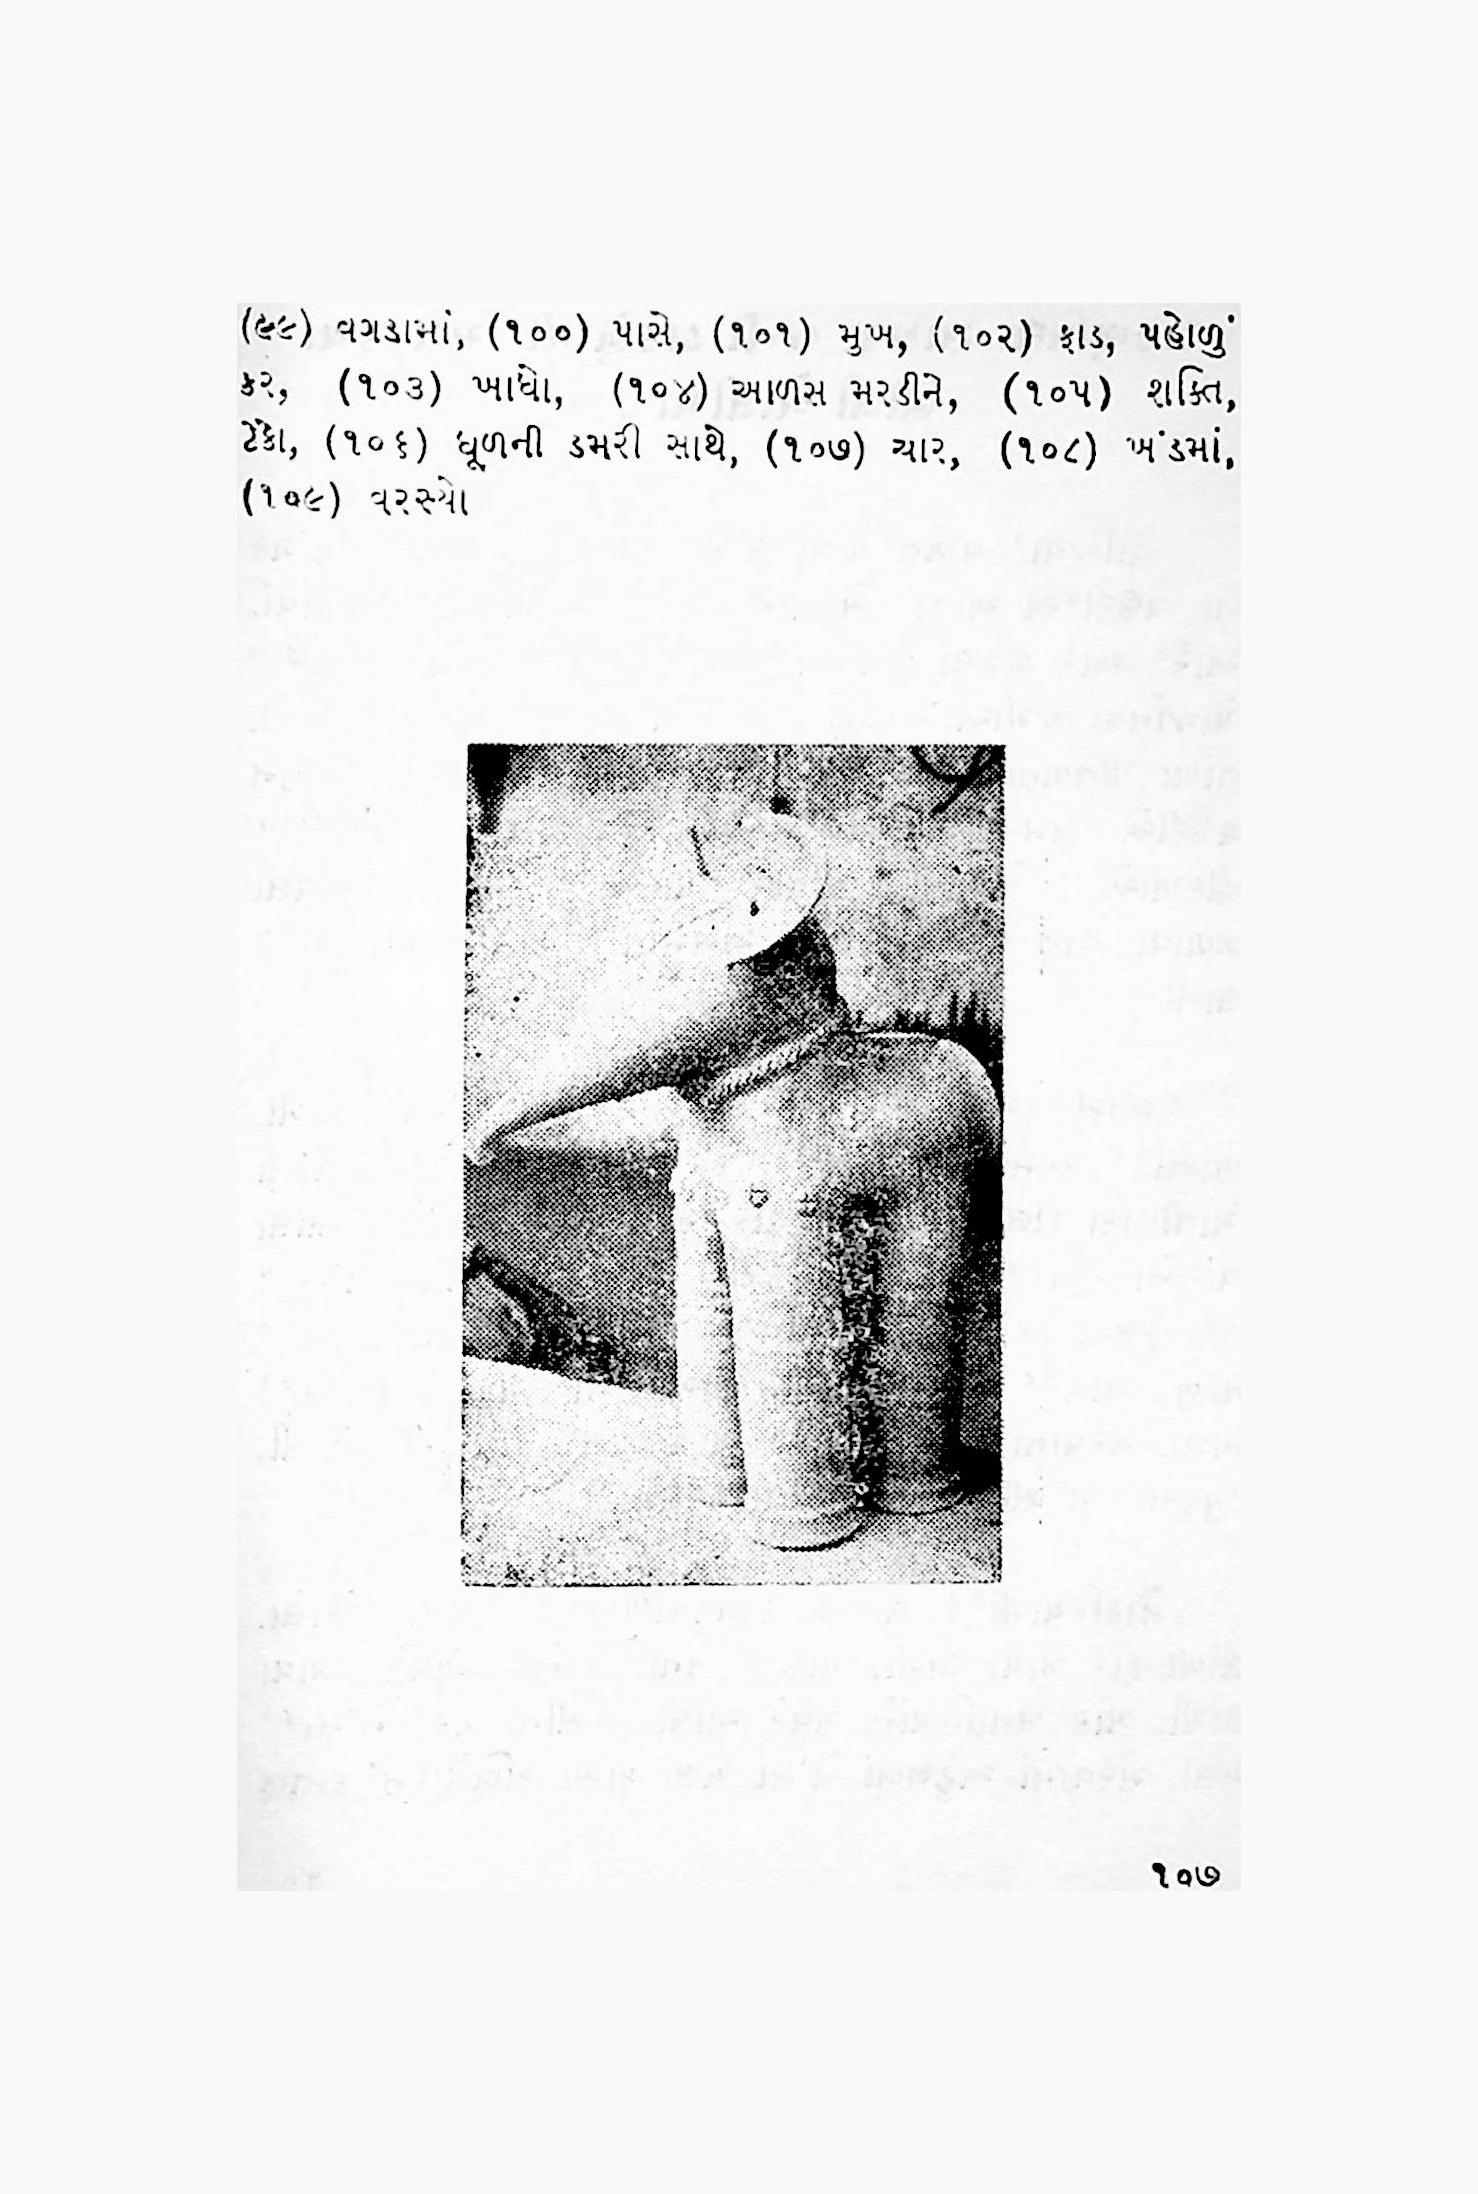 (૯૯) વગડામાં, (૧૦૦) પાસે, (૧૦૧) મુખ, (૧૦૨) ફાડ, પહોળું
કર, (૧૦૩) ખાધો, (૧૦૪) આળસ મરડીને, (૧૦૫) શક્તિ,
ટેકો, (૧૦૬) ધૂળની ડમરી સાથે, (૧૦૭) ચાર, (૧૦૮) ખંડમાં,
(૧૦૯) વરસ્યો
૧૦૭